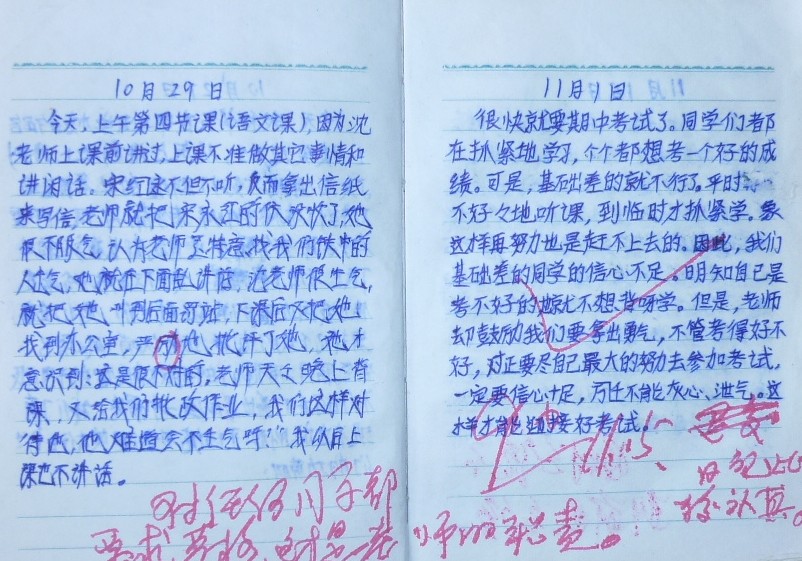 10月29日
今天,上午第四节课(语文课),因为沈
老师上课前讲过,上课不准做其它事情和
讲闲话。宋红这不但不听,反而拿出信纸
来写信,老师就把宋永红的信没收了,她
很不服气,认为老师是特意找我们铁中的
人出气,她就在下面乱讲话,沈老师很生气,
就把她叫到后面罚站,下课后又把她
找到办公室,严厉地批评了她,她才
意识到:这是很不对的,老师天天晚上背
课,又给我们批改作业,我们这样对
待他,他难道会不生气呀!"我以后上
课也不讲话。
对任何同学都
要求严格,这才是一老师的职责。
11月1日
很快就要期中考试了。同学们都
在抓紧地学习,个个都想考一个好的成
绩。可是,基础差的就不行了。平时
不好々地听课,到临时才抓紧学。象
这样再努力也是赶不上去的。因此,我们
基础差的同学的信心不足。明知自己是
考不好的也就不想背呀学。但是,老师
却鼓励我们要拿出勇气,不管考得好不
好,对正要尽自己最大的努力去参加考试,
一定要信心十足,万任不能灰心、泄气。这
样才能迎接好考试。
11.5
日记比
较认真。